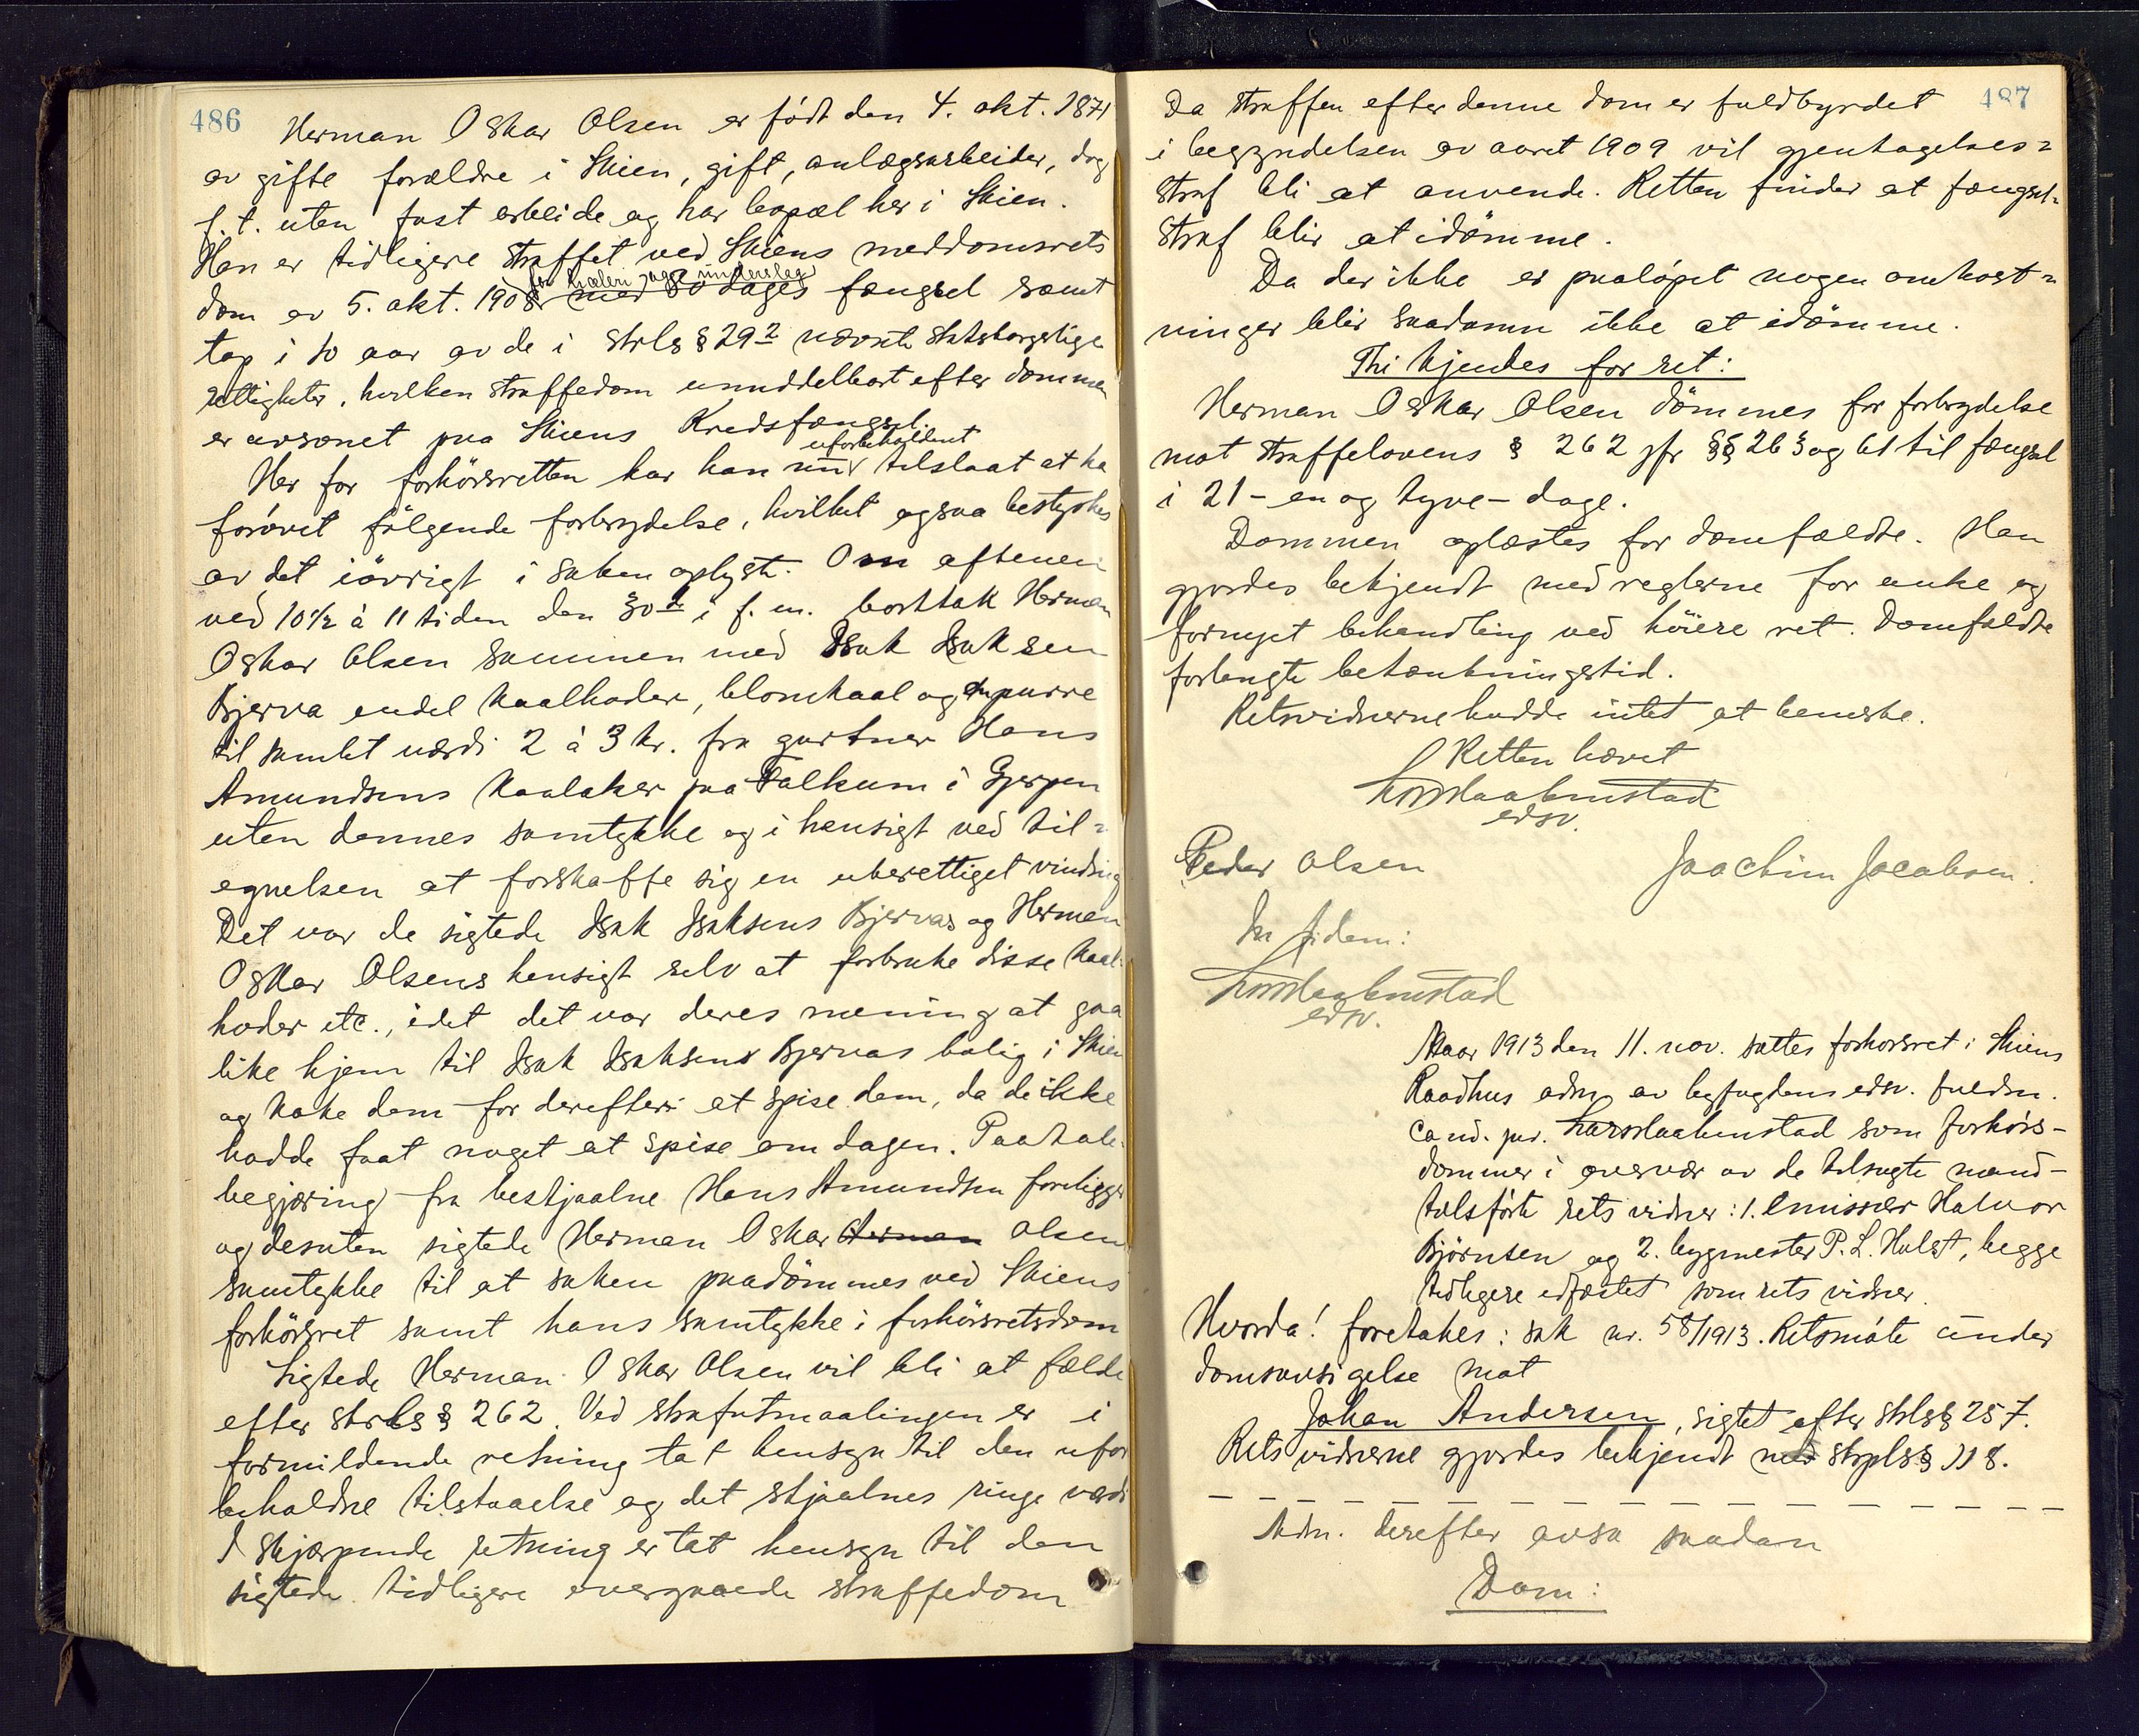 486
Herman Oskar Olsen er født den 4. okt. 1871
av gifte forældre i Skien, gift, anlægsarbeider, dog
f. t. uten fast arbeide og har bopæl her i Skien.
Han er tidligere straffet ved Skiens meddomsrets
for hæleri og underslag
dom av 5. okt. 1908 med 80 dages fængsel samt
tap i 10 aar av de i strls § 29 2 nævnte statsborgerlige
rettigheter, hvilken straffedom umiddelbart efter dommen
er avsonet paa Skiens Kredsfængsel.
uforbeholdent
Her for forhörsretten har han tilstaat at ha
forövet fölgende forbrydelse, hvilket ogsaa bestyrkes
av det iövrigt i saken oplyste. Om aftenen
ved 10½ à 11 tiden den 30te i f. m. borttok Herman
Oskar Olsen sammen med Isak Isaksen
Bjerva endel kaalhoder, blomkaal og purre
til samlet værdi 2 à 3 kr. fra gartner Hans
Amundsens kaalaker paa Falkum i Gjerpen
uten dennes samtykke og i hensigt ved til=
egnelsen at forskaffe sig en uberettiget vinding
Det var de sigtede Isak Isaksens Bjervas og Herman
Oskar Olsens hensigt selv at forbruke disse kaal=
hoder etc., idet det var deres mening at gaa
like hjem til Isak Isaksens Bjervas bolig i Skien
og koke dem for derefter at spise dem, da de ikke
hadde faat noget at spise om dagen. Paatale=
begjæring fra bestjaalne Hans Amundsen foreligger
og desuten sigtede Herman Oskar Herman Olsen
samtykke til at saken paadömmes ved Skiens
forhörsret samt hans samtykke i forhörsretsdom
Sigtede Herman Oskar Olsen vil bli at fælde
efter strls § 262. Ved strafutmaalingen er i
formildende retning tat hensyn til den ufor
beholdne tilstaaelse og det stjaalnes ringe værdi
I skjærpende retning er tat hensyn til den
sigtede tidligere overgaaede straffedom
487
Da straffen efter denne dom er fuldbyrdet
i begyndelsen av aaret 1909 vil gjentagelses=
straf bli at anvende. Retten finder at fængsel=
straf blir at idömme.
Da der ikke er paalöpet nogen omkost=
ninger blir saadanne ikke at idömme.
Thi kjendes for ret:
Herman Oskar Olsen dömmes for forbrydelse
mot straffelovens § 262 jfr §§ 263 og 61 til fængsel
i 21 - en og tyve - dage.
Dommen oplæstes for domfældte. Han
gjordes bekjendt med reglerne for anke og
fornyet behandling ved höiere ret. Domfældte
forlangte betænkningstid.
Retsvidnerne hadde intet at bemerke.
Retten hævet
edsv.
Peder Olsen
Joachim Jacobsen.
In fidem:
edsv.
Aaar 1913 den 11. nov. sattes forhorsret i Skiens
Raadhus adm av byfogdens edsv. fuldm.
cand. jur. som forhörs-
dommer i overvær av de tilsagte mand-
talsförte rets vidner: 1. Emissær Halvor
Björnsen og 2. bygmester P. L. Holst, begge
tidligere edfæstet som rets vidner.
Hvorda! foretakes: sak nr. 58/1913. Retsmöte under
domsavsigelse mot
Johan Andersen, sigtet efter strls § 257.
Rets vidnerne gjordes bekjendt med strpls § 118.
Adm. derefter avsa saadan
Dom: